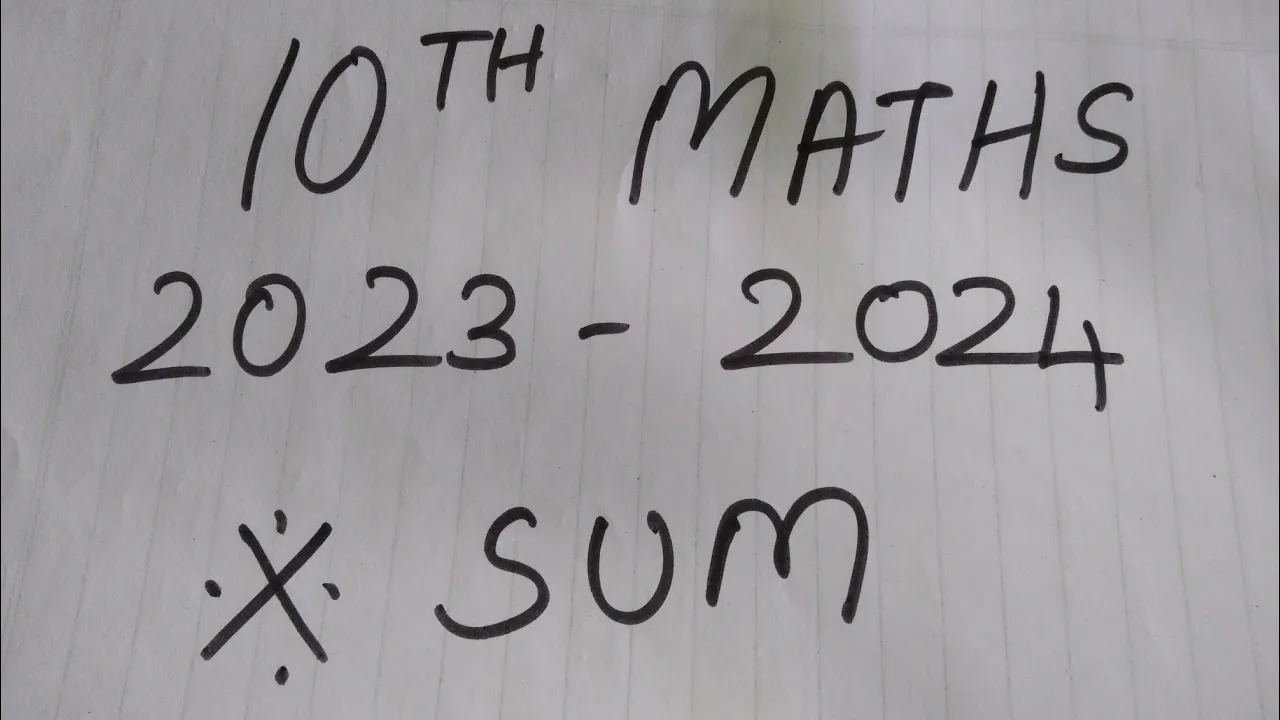 10TH MATHS
2023 - 2024
※ SUM